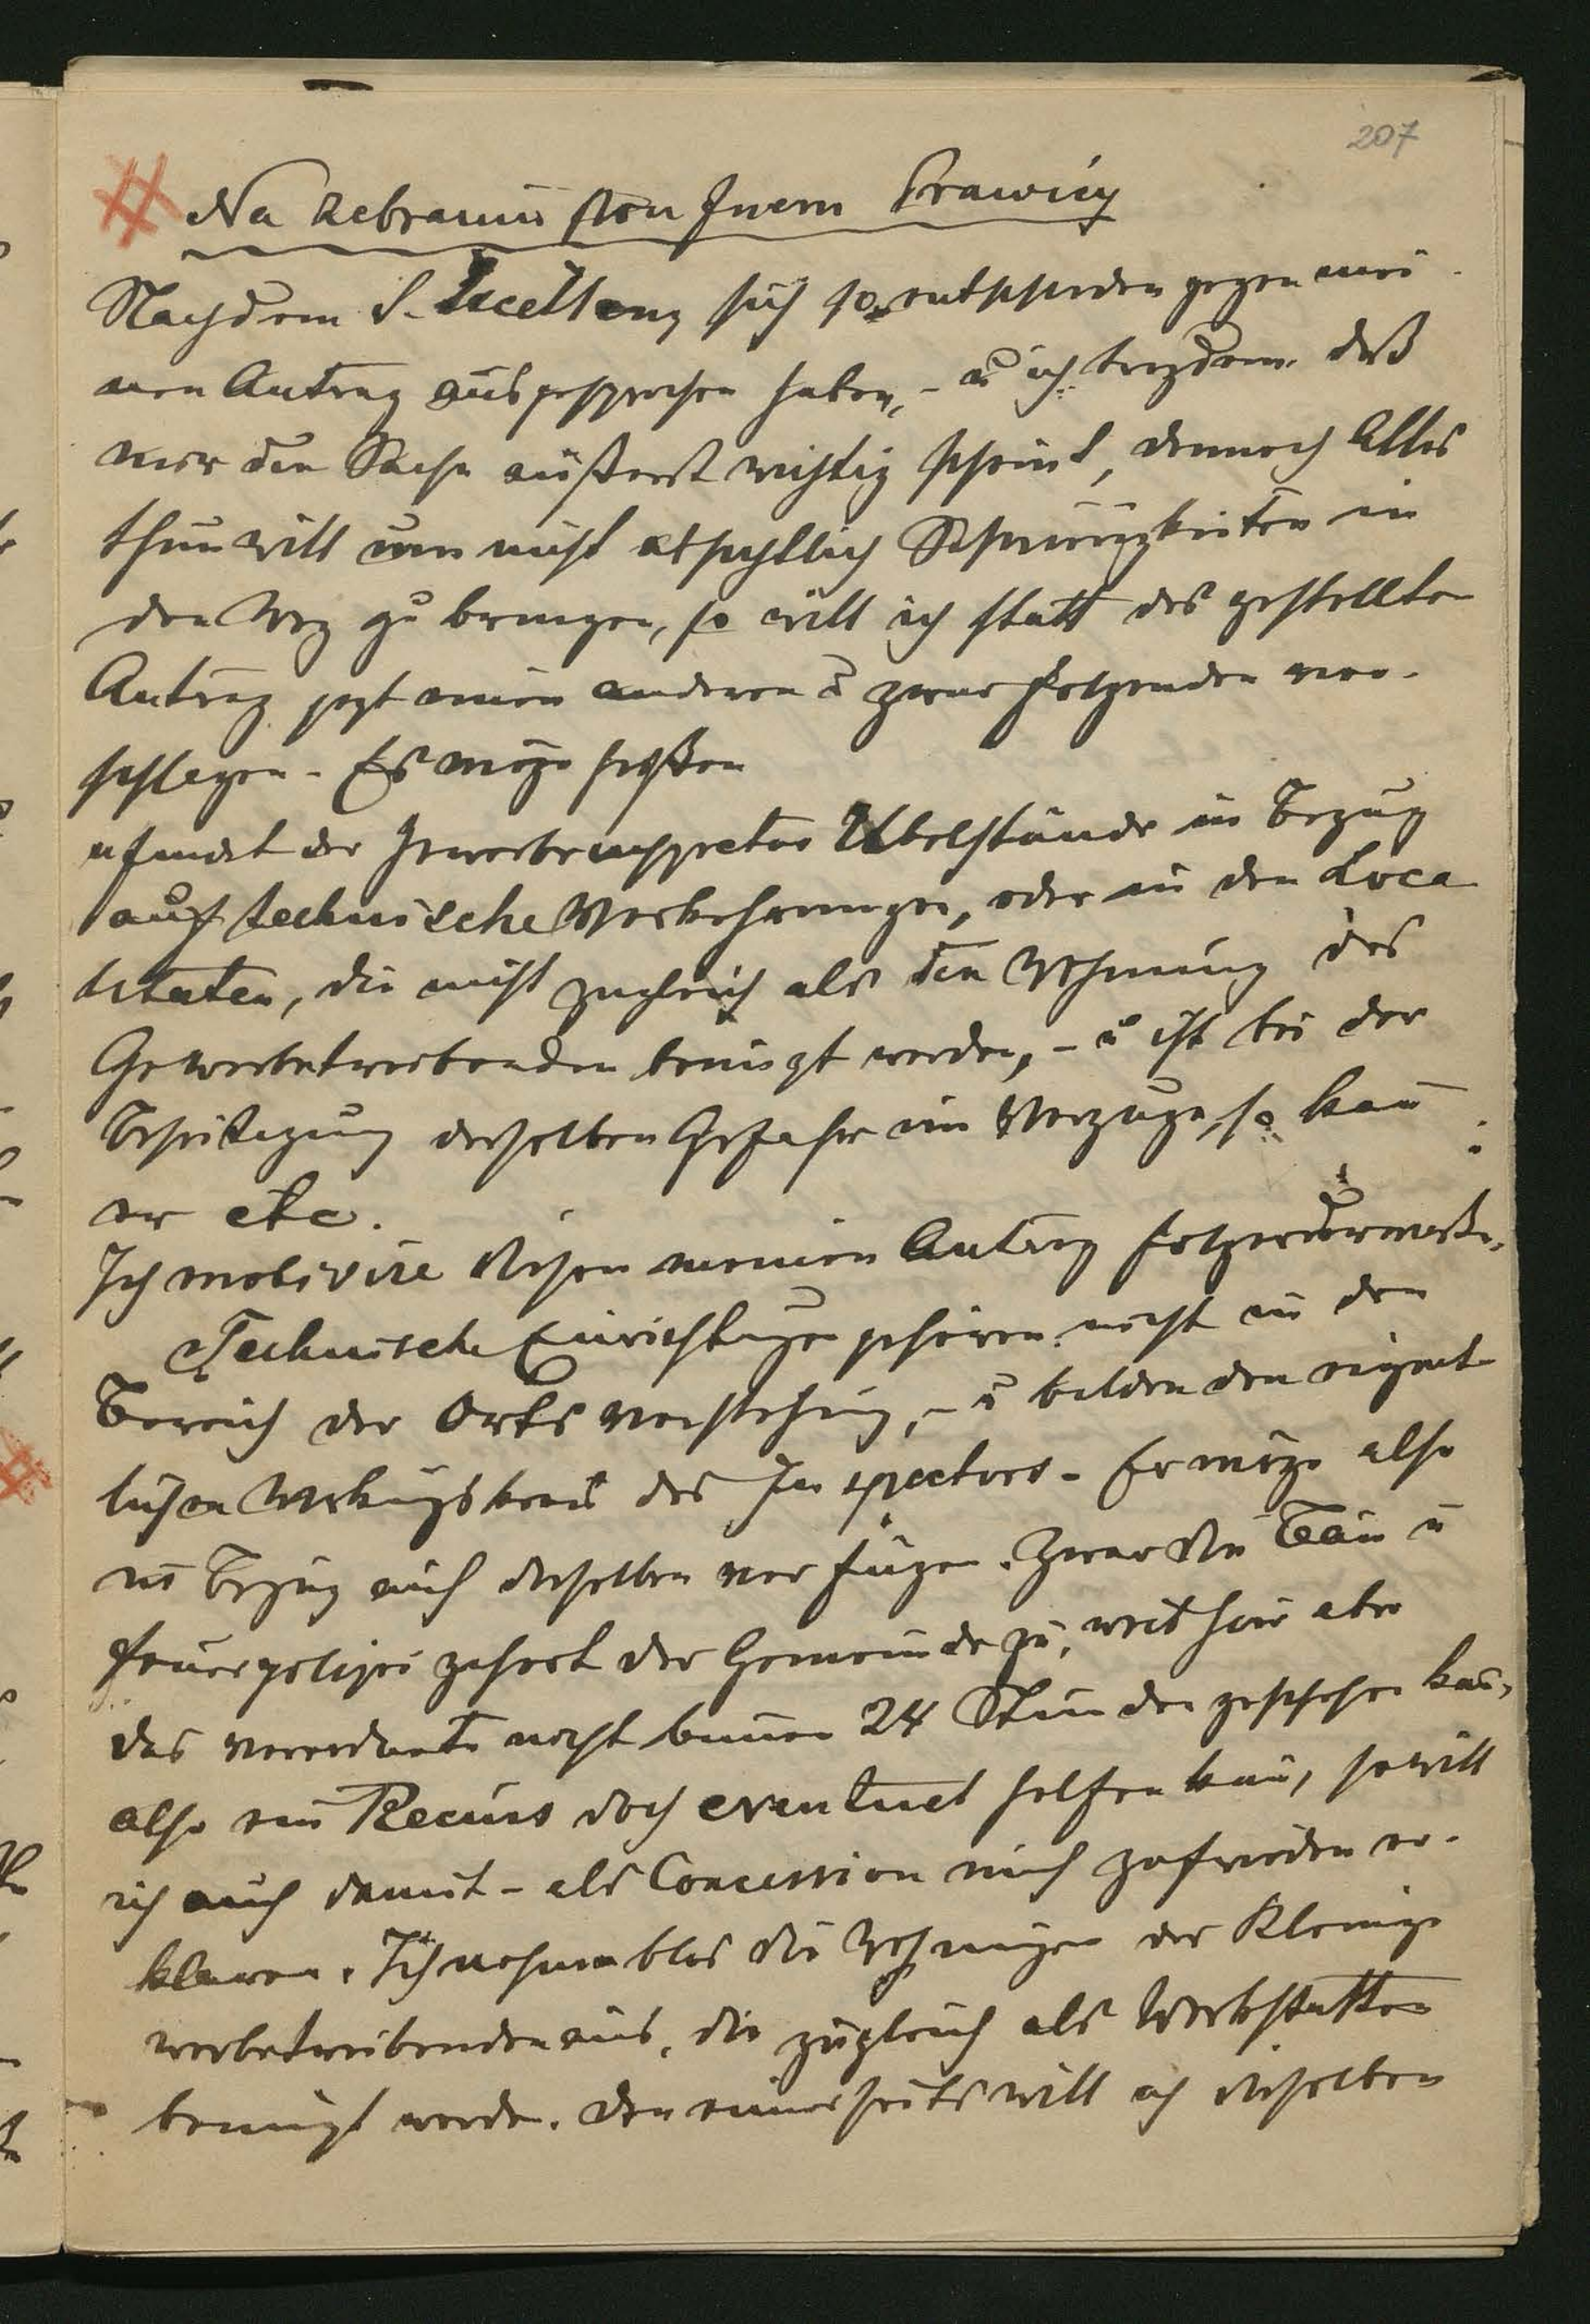 207
Na zebraniu stron Prawicy
Nachdem S. Excellenz sich so entschieden gegen mei-
nen Antrag ausgesprochen haben, - u ich trozdem daß
mir die Sache äußerst wichtig scheint, dennoch Alles
thun will um nicht absichtlich Schwierigkeiten in
den Weg zu bringen, so will ich statt des gestellten
Antrag jezt einen anderen u zwar folgenden vor-
schlagen - Es möge heißen
"findet der Gewerbeinspector Übelstände in Bezug
auf technische Vorkehrungen, oder in den Loca
litäten, die nicht zugleich als die Wohnung des
Gewerbetreibenden benüzt werden, - u ist bei der
Beseitigung derselben Gefahr im Verzuge, so kañ
er etc.
Ich motivire diesen meinen Antrag folgendermaße.
Technische Einrichtungen gehören nicht in den
Bereich der Ortsvorstehung, - u bilden den eigent
lichen Wirkungskreis des Inspectors - Er möge also
in Bezug auf dieselben verfügen. Zwar die Bau u
Feuerpolizei gehört der Gemeinde zu, weil hier aber
das Verordnete nicht binnen 24 Stunden geschehen kañ,
also ein Recurs doch eventuel helfen kañ, so will
ich auch damit - als Concession mich zufrieden er-
klären. Ich nehme blos die Wohnungen der Kleinge
werbetreibenden aus, die zugleich als Werkstätten
benüzt werden. Den einerseits will ich dieselben